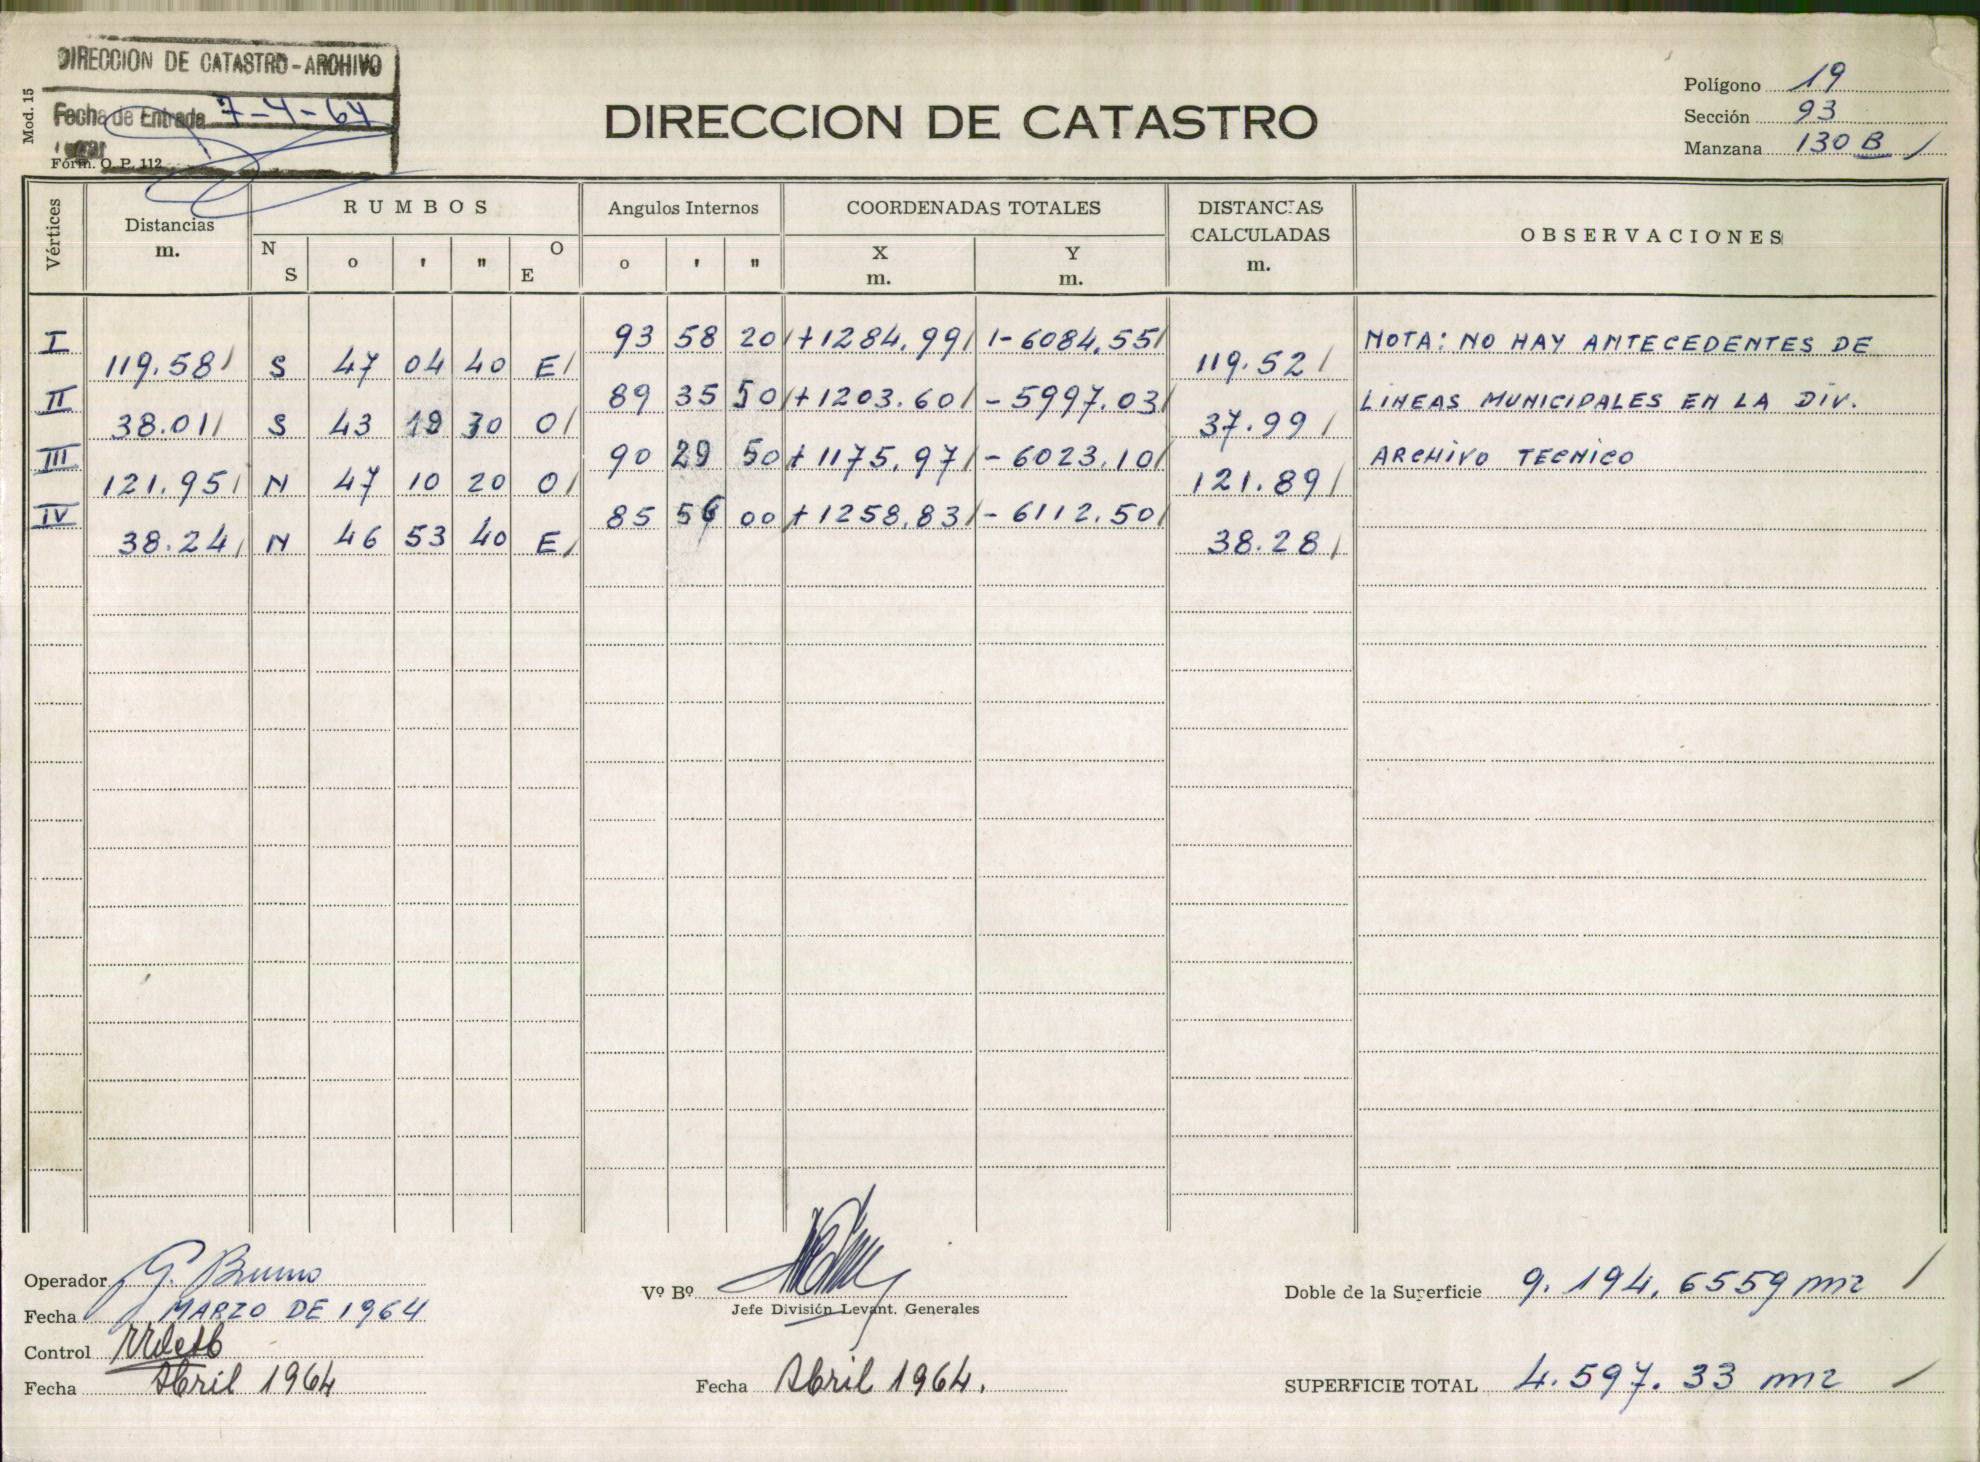 DIRECCION DE CATASTRO - ARCHIVO
Fecha de Entrada 7-4-64
Mod. 15
Fórm. O. P. 112
DIRECCION DE CATASTRO
Polígono 19
Sección 93
Manzana 130 B
Vértices
Distancias
m.
RUMBOS
N S o ' " O E
Angulos Internos
o ' "
COORDENADAS TOTALES
X m.
Y m.
DISTANCIAS
CALCULADAS
m.
OBSERVACIONES
I 93 58 20 +1284.99 -6084.55 NOTA: NO HAY ANTECEDENTES DE
119.58 S 47 04 40 E 119.52
II 89 35 50 +1203.60 -5997.03 LINEAS MUNICIPALES EN LA DIV.
38.01 S 43 19 30 O 37.99
III 90 29 50 +1175.97 -6023.10 ARCHIVO TECNICO
121.95 N 47 10 20 O 121.89
IV 85 56 00 +1258.83 -6112.50
38.24 N 46 53 40 E 38.28
Operador G. Bruno
Fecha MARZO DE 1964
Control
Fecha Abril 1964
Vº Bº
Jefe División Levant. Generales
Fecha Abril 1964.
Doble de la Superficie 9.194.6559 m2
SUPERFICIE TOTAL 4.597.33 m2